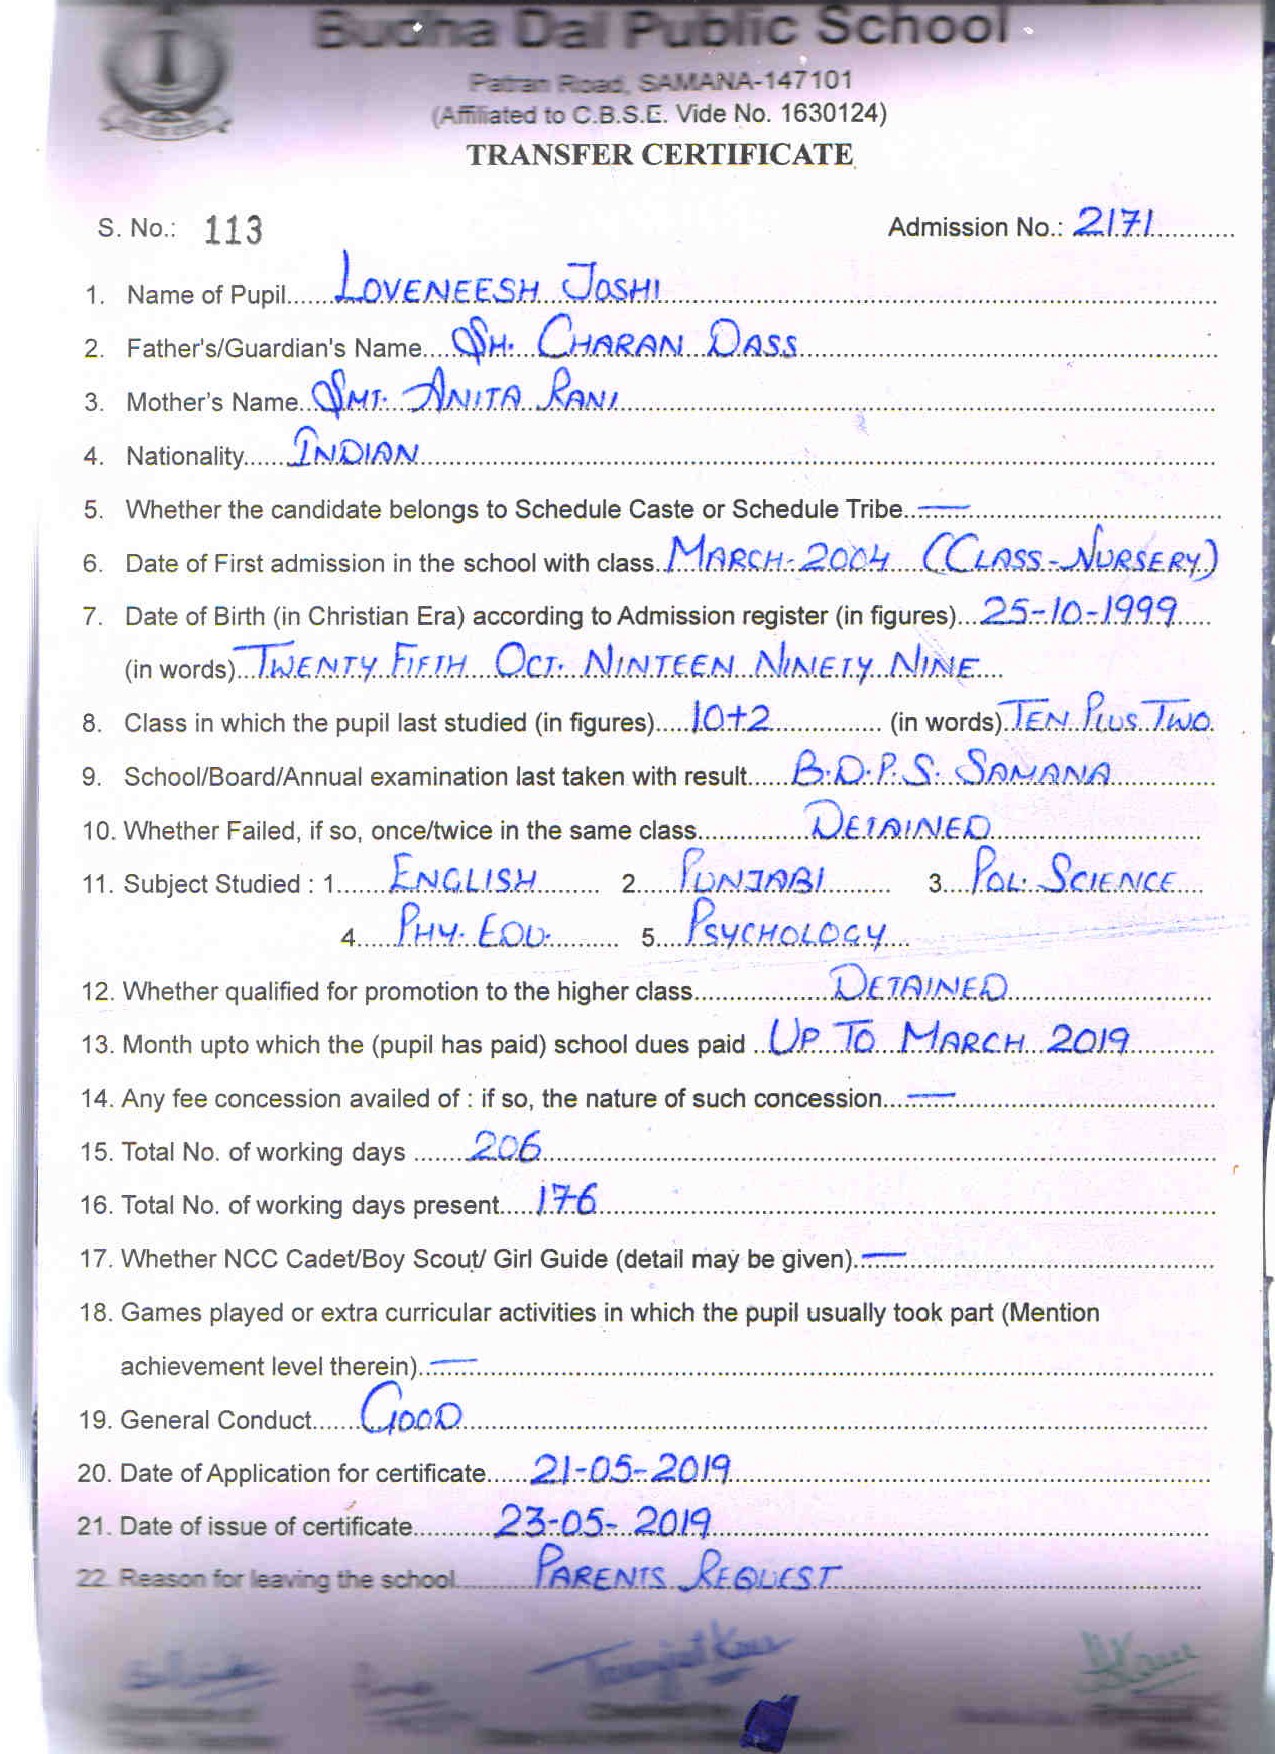 Budha Dal Public School
Patran Road, SAMANA-147101
(Affiliated to C.B.S.E. Vide No. 1630124)
TRANSFER CERTIFICATE
S. No.: 113 Admission No.: 2171
1. Name of Pupil LOVENEESH JOSHI
2. Father's/Guardian's Name SH. CHARAN DASS
3. Mother's Name SMT. ANITA RANI
4. Nationality INDIAN
5. Whether the candidate belongs to Schedule Caste or Schedule Tribe —
6. Date of First admission in the school with class MARCH-2004 (CLASS-NURSERY)
7. Date of Birth (in Christian Era) according to Admission register (in figures) 25-10-1999
(in words) TWENTY FIFTH OCT. NINTEEN NINETY NINE
8. Class in which the pupil last studied (in figures) 10+2 (in words) TEN PLUS TWO
9. School/Board/Annual examination last taken with result B.D.P.S. SAMANA
10. Whether Failed, if so, once/twice in the same class DETAINED
11. Subject Studied : 1 ENGLISH 2 PUNJABI 3 POL. SCIENCE
4 PHY. EDU. 5 PSYCHOLOGY
12. Whether qualified for promotion to the higher class DETAINED
13. Month upto which the (pupil has paid) school dues paid UP TO MARCH 2019
14. Any fee concession availed of : if so, the nature of such concession —
15. Total No. of working days 206
16. Total No. of working days present 176
17. Whether NCC Cadet/Boy Scout/ Girl Guide (detail may be given) —
18. Games played or extra curricular activities in which the pupil usually took part (Mention
achievement level therein) —
19. General Conduct GOOD
20. Date of Application for certificate 21-05-2019
21. Date of issue of certificate 23-05-2019
22. Reason for leaving the school PARENTS REQUEST